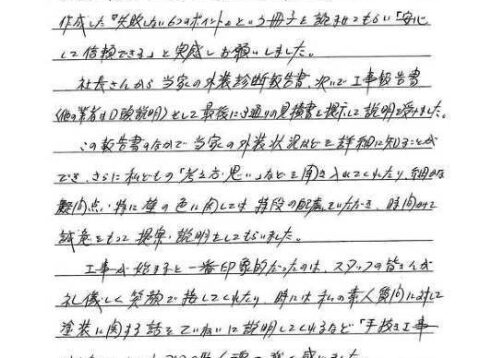 作成した『失敗しない6つのポイント』という冊子を読ませてもらい「安心
して信頼できる」と実感しお願いしました。
社長さんから当家の外装診断報告書、次いで工事報告書
(他業者は口頭説明)として最後に3通りの見積書を提示して説明を受けました。
この報告書のなかで当家の外装状況などを詳細に知ることが
でき、さらに私どもの「考え方・思い」などを聞き入れてくれたり、細かな
疑問点・特に壁の色に関しては特段の配慮をいただき、時間をかけて
誠意をもって提案・説明をしてもらいました。
工事が始まると一番印象的だったのは、スタッフの皆さんが
礼儀しく笑顔で接してくれたり、時には私の素人質問に対して
塗装に関する話をていねいに説明してくれるなど「手抜き工事